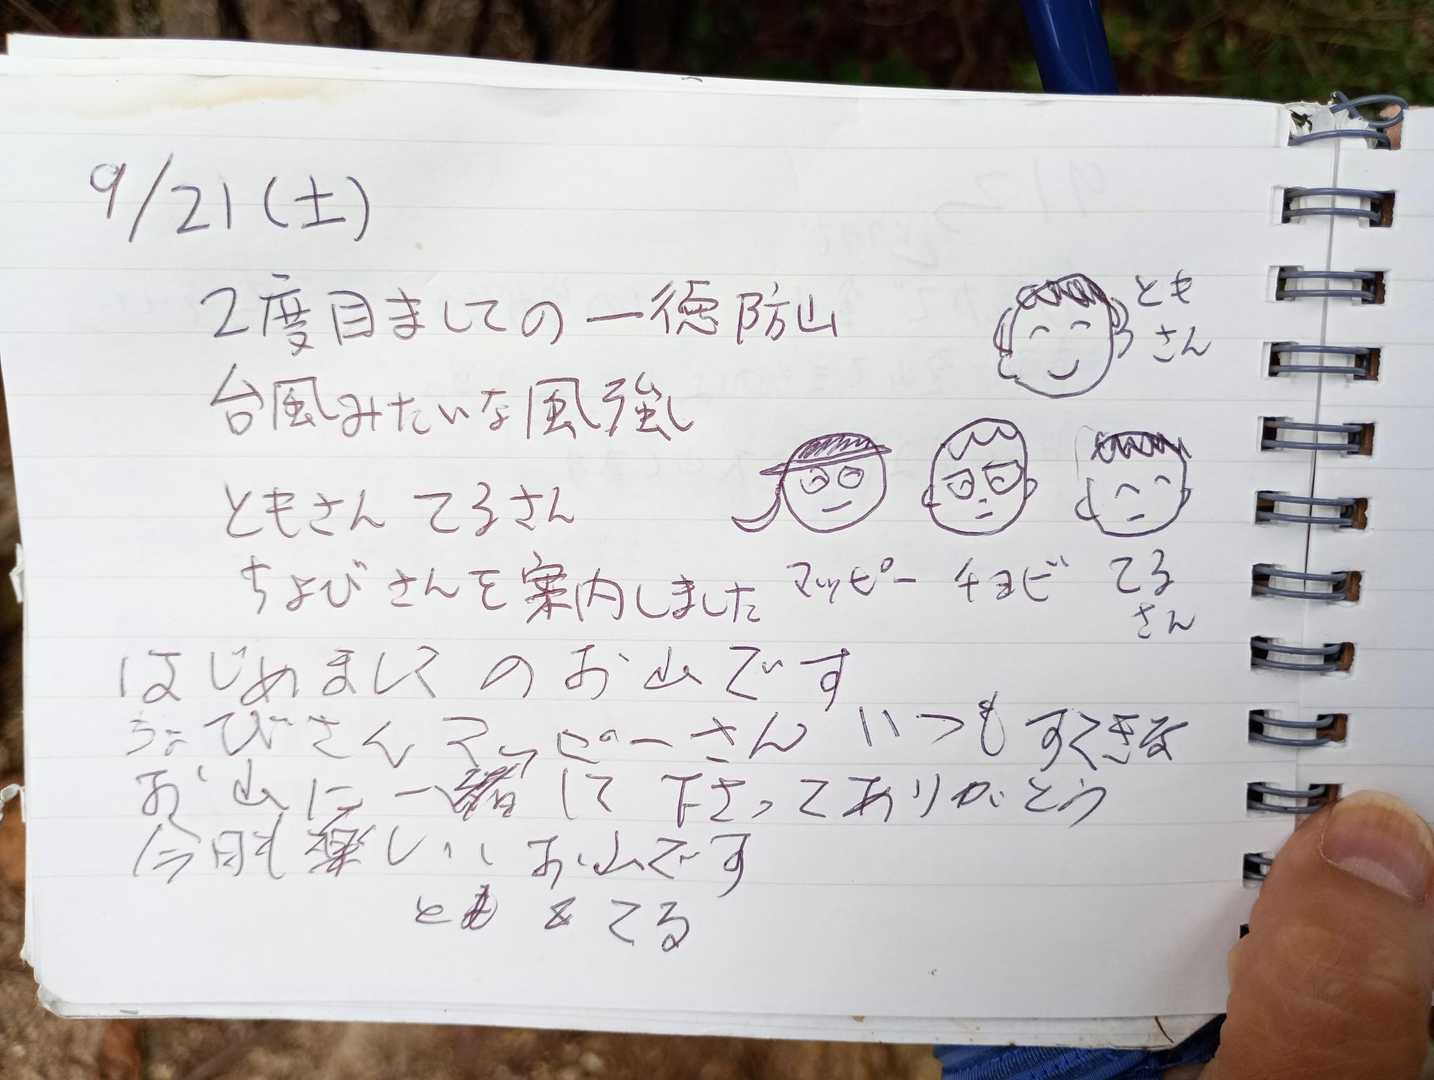 9/21(土)
2度目ましての一徳防山
台風みたいな風強し
ともさん てるさん
ちよびさんを案内しました
とも
さん
マッピー チョビ てる
さん
はじめましてのお山です
ちょびさん マッピーさん いつもすてきな
お山に一緒して下さってありがとう
今日も楽しいお山です
とも & てる